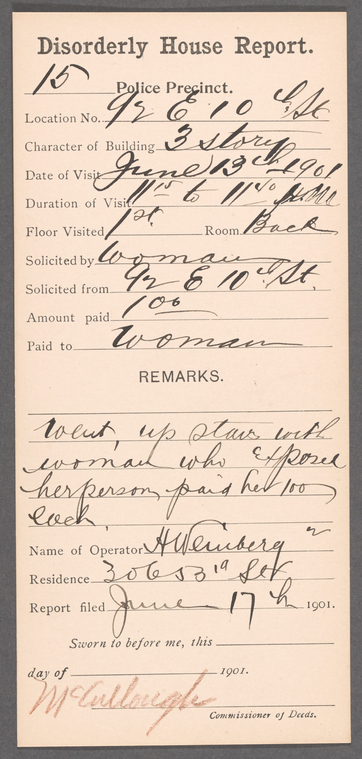 Disorderly House Report.
15 Police Precinct.
Location No. 92 E 10th St
Character of Building 3 story
Date of Visit June 13th 1901
Duration of Visit 11 15 to 11 40 P.M.
Floor Visited 1st. Room Back
Solicited by Woman
Solicited from 92 E 10th St.
Amount paid 1 00
Paid to Woman
REMARKS.
Went up stairs with
woman who exposed
her person paid her 100
each
Name of Operator H Weinberg
Residence 306 53 St
Report filed June 17th 1901.
Sworn to before me, this
day of 1901.
McCullough
Commissioner of Deeds.